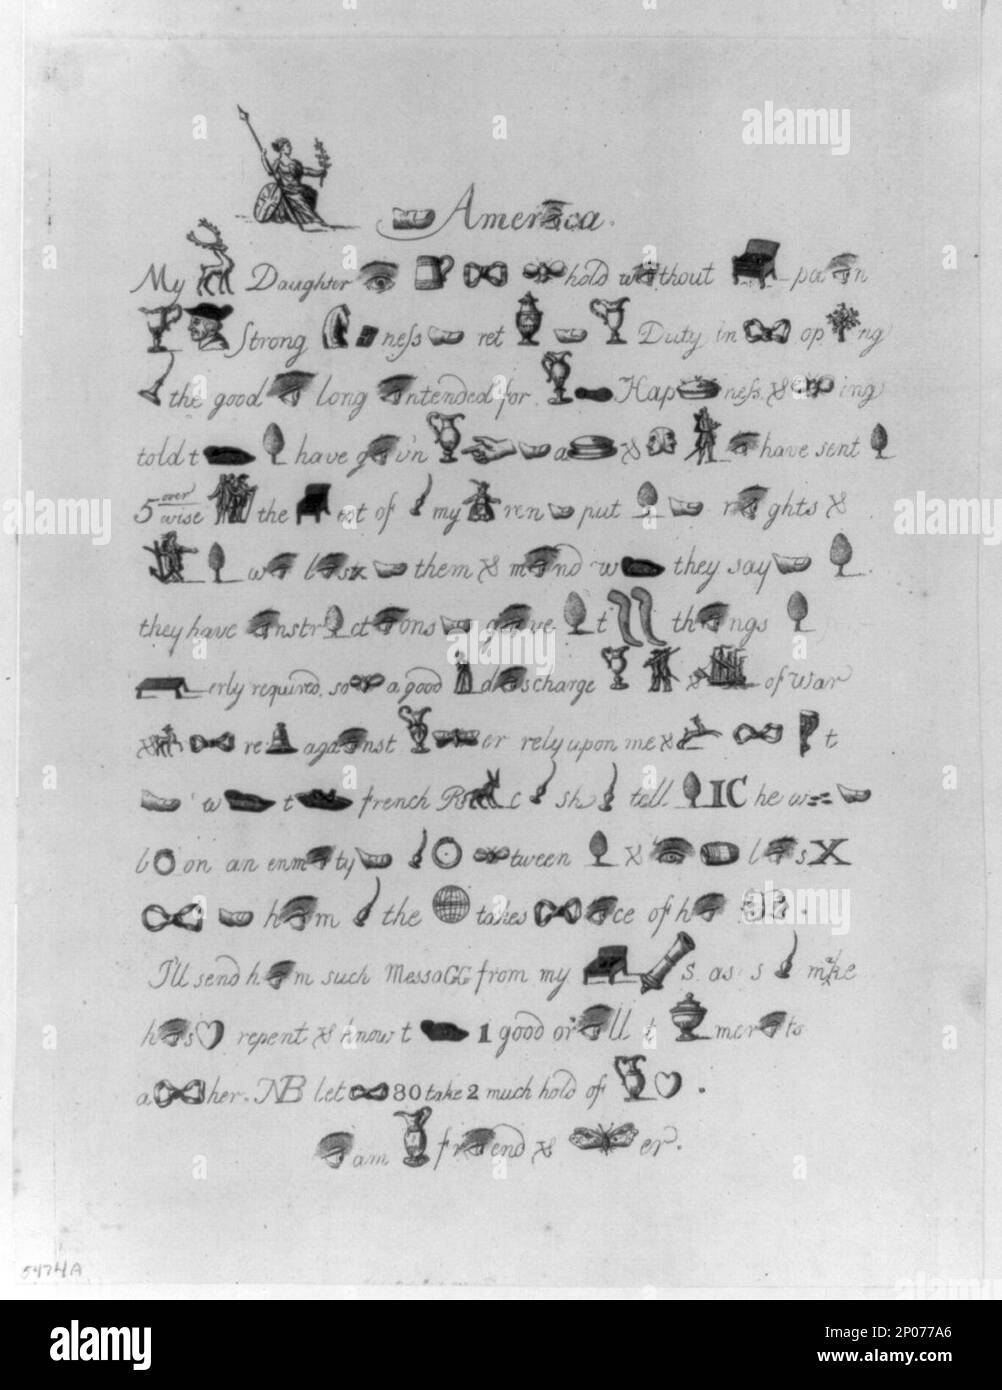 America.
My Daughter hold w thout pa n
Strong ness ret Duty in op ng
the good long ntended for Hap ness & ing
told t have g v'n a & have sent
5 over/wise the est of my ren put r ghts &
w l s them & m nd w they say
they have nstr ct ons g ve t th ngs
erly required, so a good d scharge & of War
& re aga nst er rely upon me & t
w t french R c sh tell IC he w
b on an enm ty tween & l s X
h m the takes ce of h .
I'll send h m such MessaGG from my s as s m ke
h s repent & know t 1 good or ll t mer ts
a her. NB let 80 take 2 much hold of .
am fr end & er.
5474A
alamy
alamy
Image ID: 2P077A6
www.alamy.com